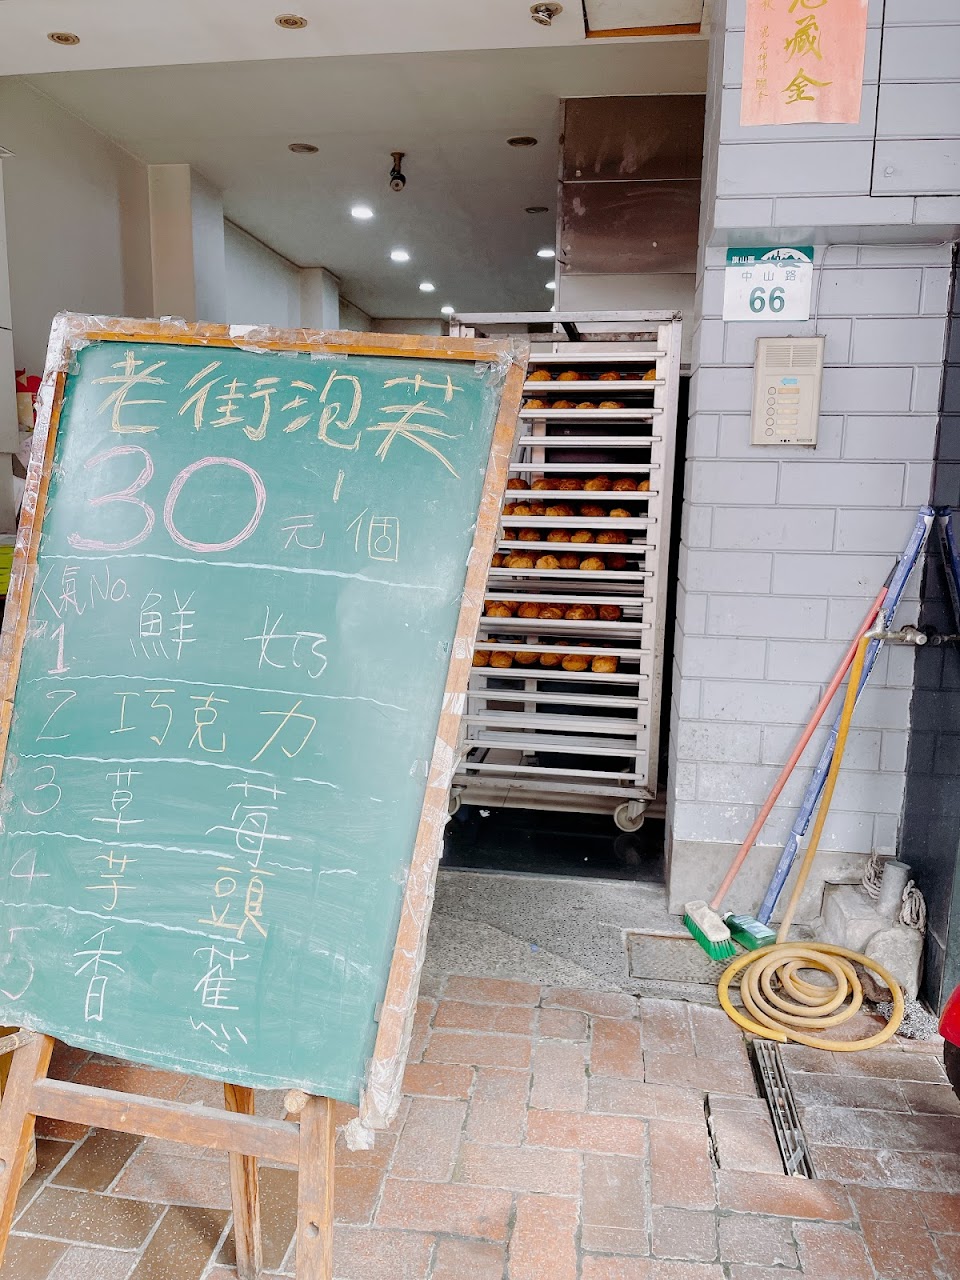 老街泡芙
30元
一個
人氣No.
1 鮮奶
2 巧克力
3 草莓
4 芋頭
5 香蕉
藏金
旗山區
中山路
66